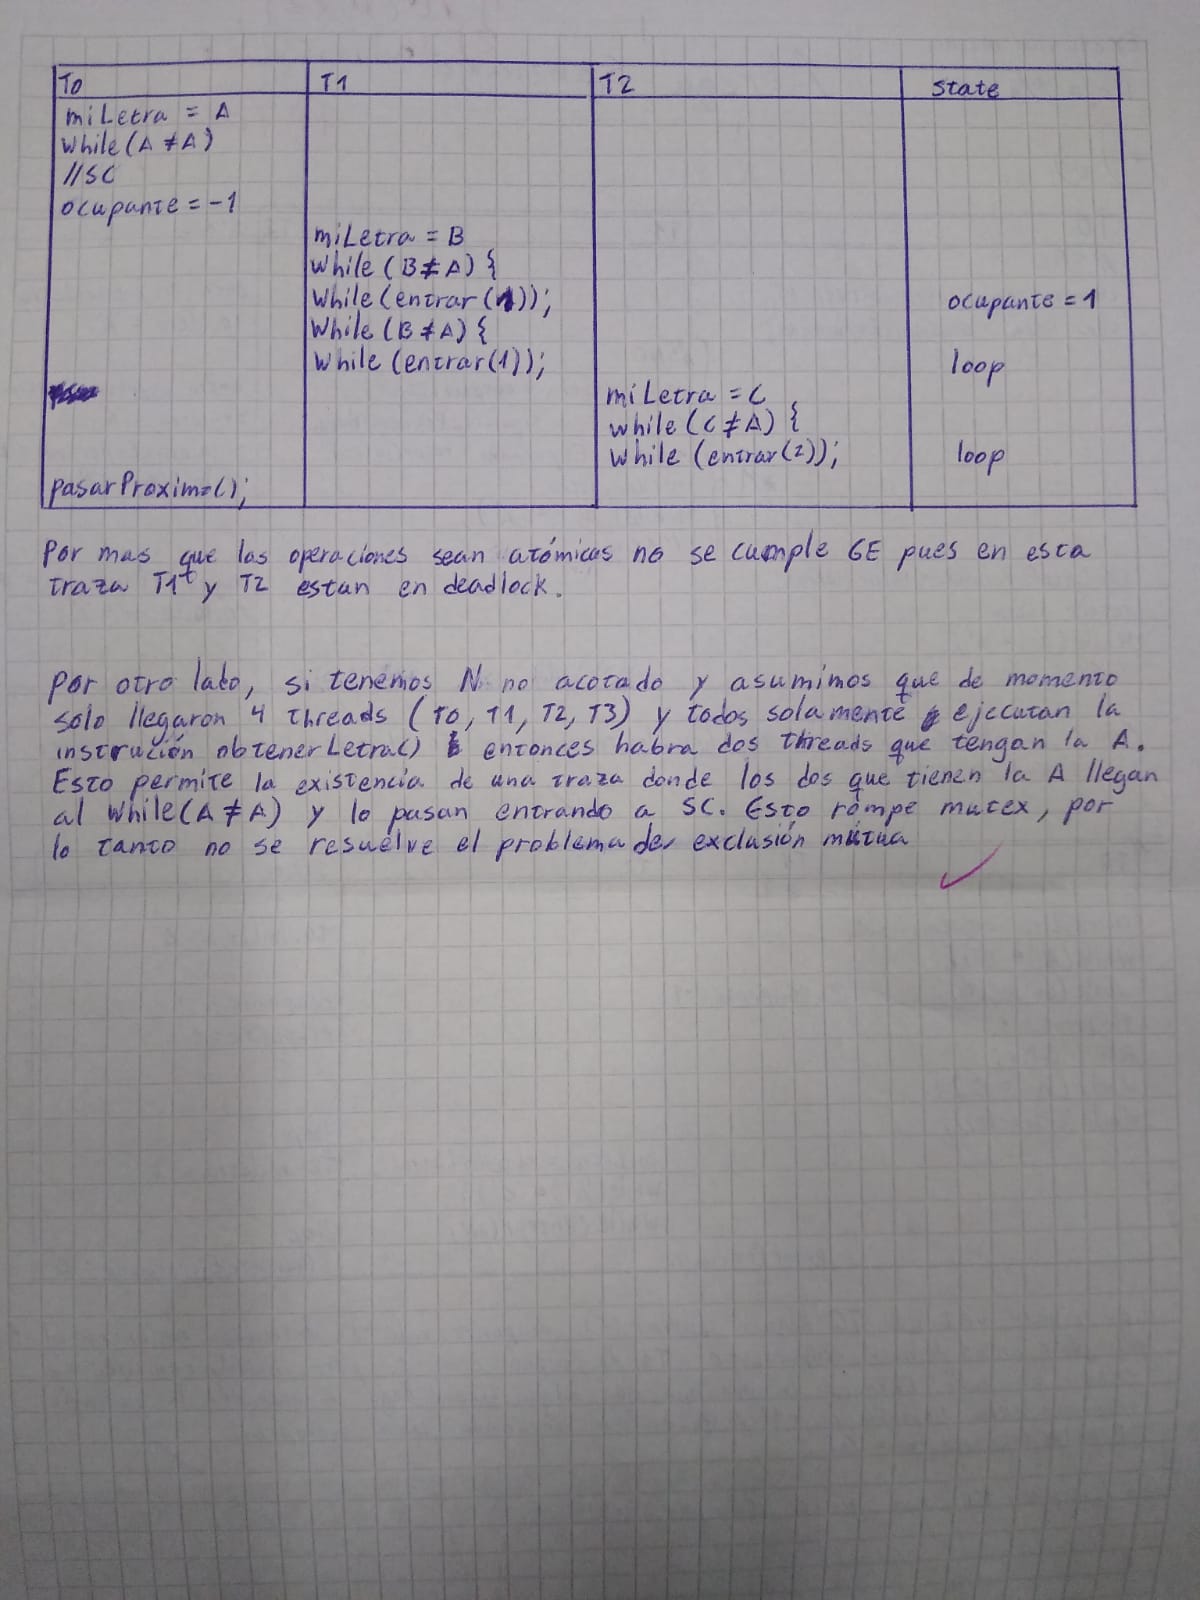 T0 T1 T2 state
miLetra = A
while(A ≠ A)
//SC
ocupante = -1
miLetra = B
while (B ≠ A) {
while(entrar(1)); ocupante = 1
while (B ≠ A) {
while (entrar(1)); loop
miLetra = C
while (C ≠ A) {
while (entrar(2)); loop
pasarProximo();
Por mas que las operaciones sean atómicas no se cumple GE pues en esta
traza T1 y T2 estan en deadlock.
Por otro lado, si tenemos N no acotado y asumimos que de momento
solo llegaron 4 threads (T0, T1, T2, T3) y todos solamente ejecutan la
instrución obtenerLetra() entonces habra dos threads que tengan la A.
Esto permite la existencia de una traza donde los dos que tienen la A llegan
al while(A ≠ A) y lo pasan entrando a SC. Esto rompe mutex, por
lo tanto no se resuelve el problema de exclusión mutua